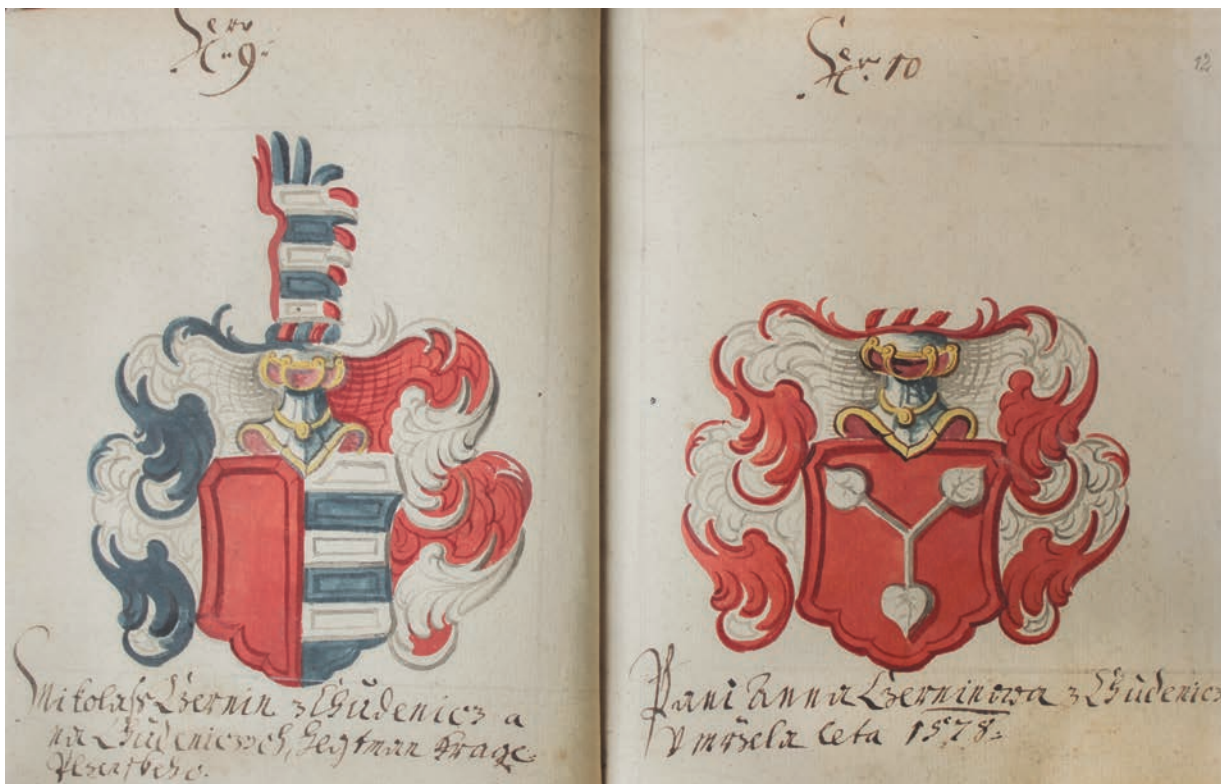 N. 9.
Mikolass Czernin z Chudenicz a
na Chudeniczych, Hegtman Krage
Plzenskeho.
N. 10
12
Pani Anna Czerninowa z Chudenicz
Vmrzela leta 1578.